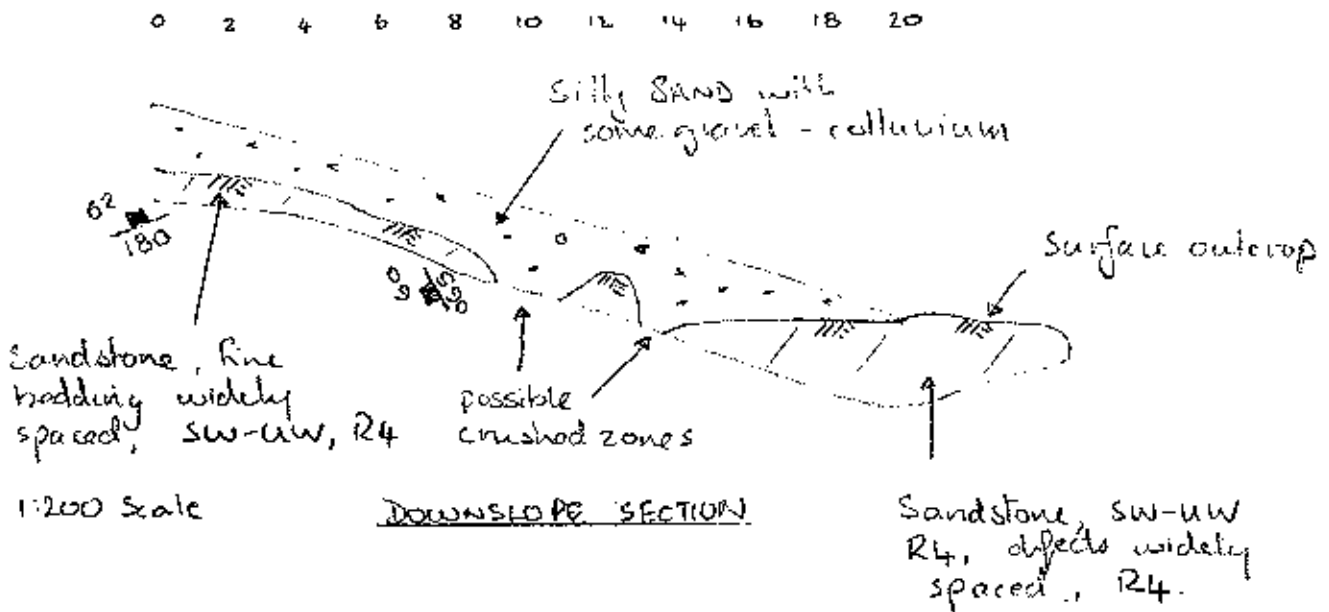 0 2 4 6 8 10 12 14 16 18 20
Silty SAND with
some gravel - colluvium
Surface outcrop
62
180
60
Sandstone, fine
bedding widely
spaced, SW-UW, R4
possible
crushed zones
1:200 Scale
DOWNSLOPE SECTION
Sandstone, SW-UW
R4, defects widely
spaced, R4.